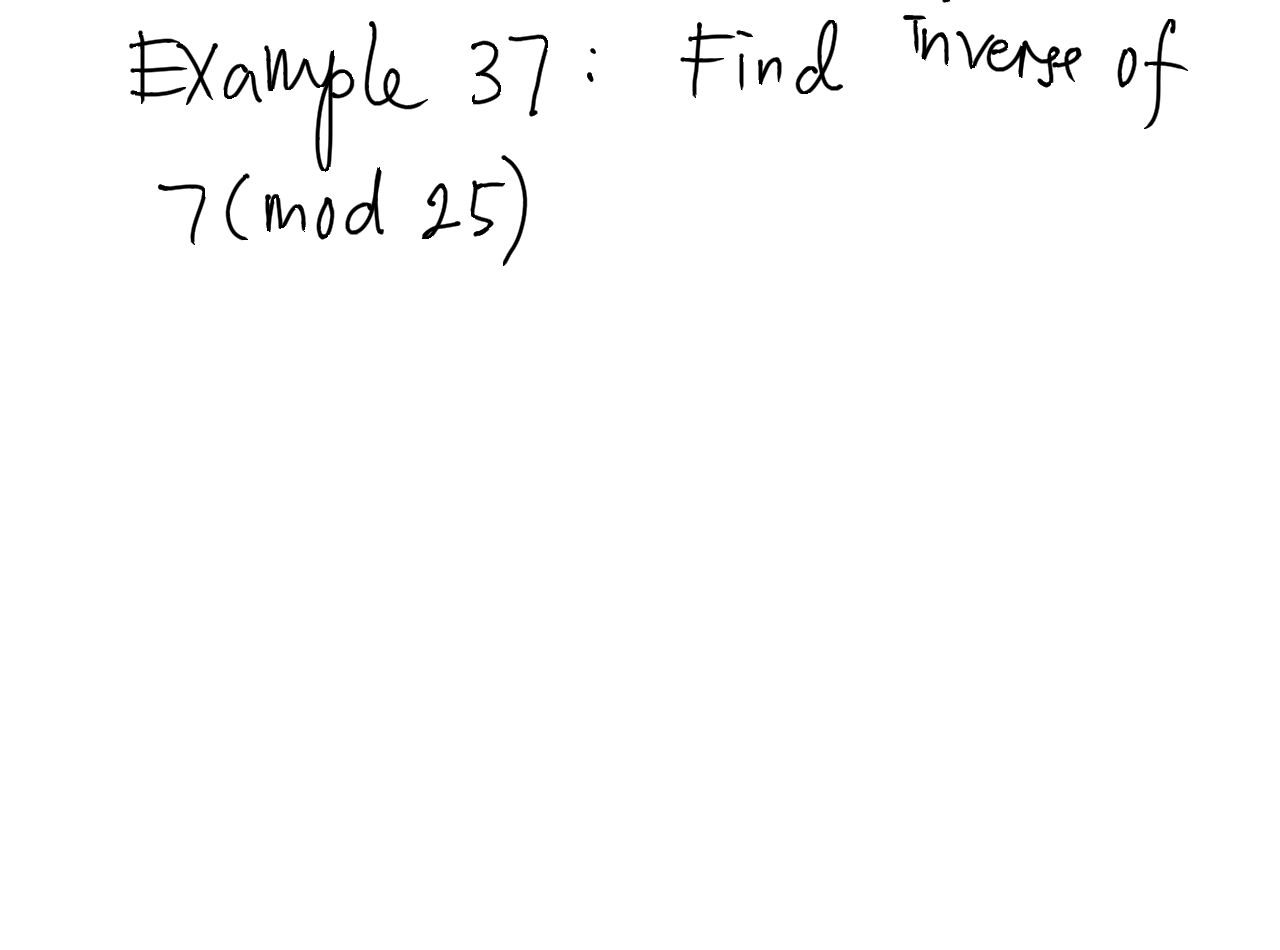 Example 37: Find Inverse of
7(mod 25)